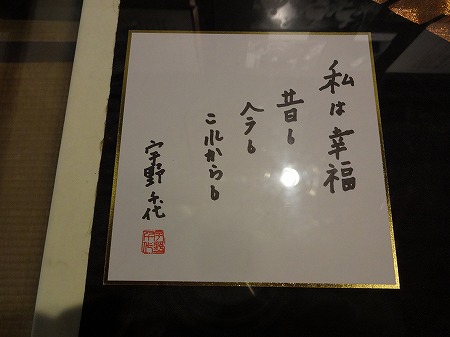 私は幸福
昔も
今も
これからも
宇野千代